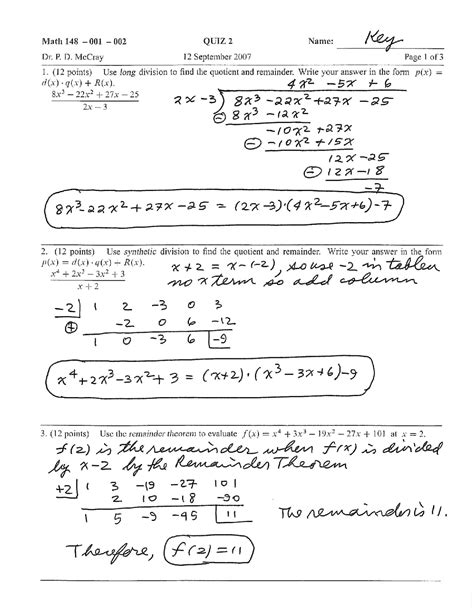 Math 148 – 001 – 002 QUIZ 2 Name: Key
Dr. P. D. McCray 12 September 2007 Page 1 of 3
1. (12 points) Use long division to find the quotient and remainder. Write your answer in the form p(x) =
d(x) · q(x) + R(x).
4x² -5x + 6
8x³ − 22x² + 27x − 25
2x − 3
2x-3 8x³ -22x² +27x -25
⊖ 8x³ -12x²
-10x² +27x
⊖ -10x² +15x
12x -25
⊖ 12x -18
-7
8x³-22x² + 27x -25 = (2x-3)·(4x²-5x+6)-7
2. (12 points) Use synthetic division to find the quotient and remainder. Write your answer in the form
p(x) = d(x) · q(x) + R(x).
x⁴ + 2x³ − 3x² + 3
x + 2
x+2 = x-(-2), so use -2 in tableu
no x term so add column
-2 1 2 -3 0 3
⊕ -2 0 6 -12
1 0 -3 6 -9
x⁴+2x³-3x²+3 = (x+2)·(x³-3x+6)-9
3. (12 points) Use the remainder theorem to evaluate f(x) = x⁴ + 3x³ − 19x² − 27x + 101 at x = 2.
f(2) is the remainder when f(x) is divided
by x-2 by the Remainder Theorem
+2 1 3 -19 -27 101
2 10 -18 -90
1 5 -9 -45 11
The remainder is 11.
Therefore, f(2)=11